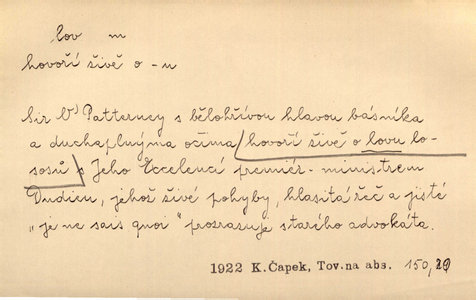 lov m
hovoří živě o -u
Sir W Patterney s bělohřívou hlavou básníka
a duchaplnýma očima hovoří živě o lovu lo-
sosů s Jeho Excelencí premiér-ministrem
Dudieu, jehož živé pohyby, hlasitá řeč a jisté
„je ne sais quoi" prozrazuje starého advokáta.
1922 K.Čapek, Tov.na abs. 150,